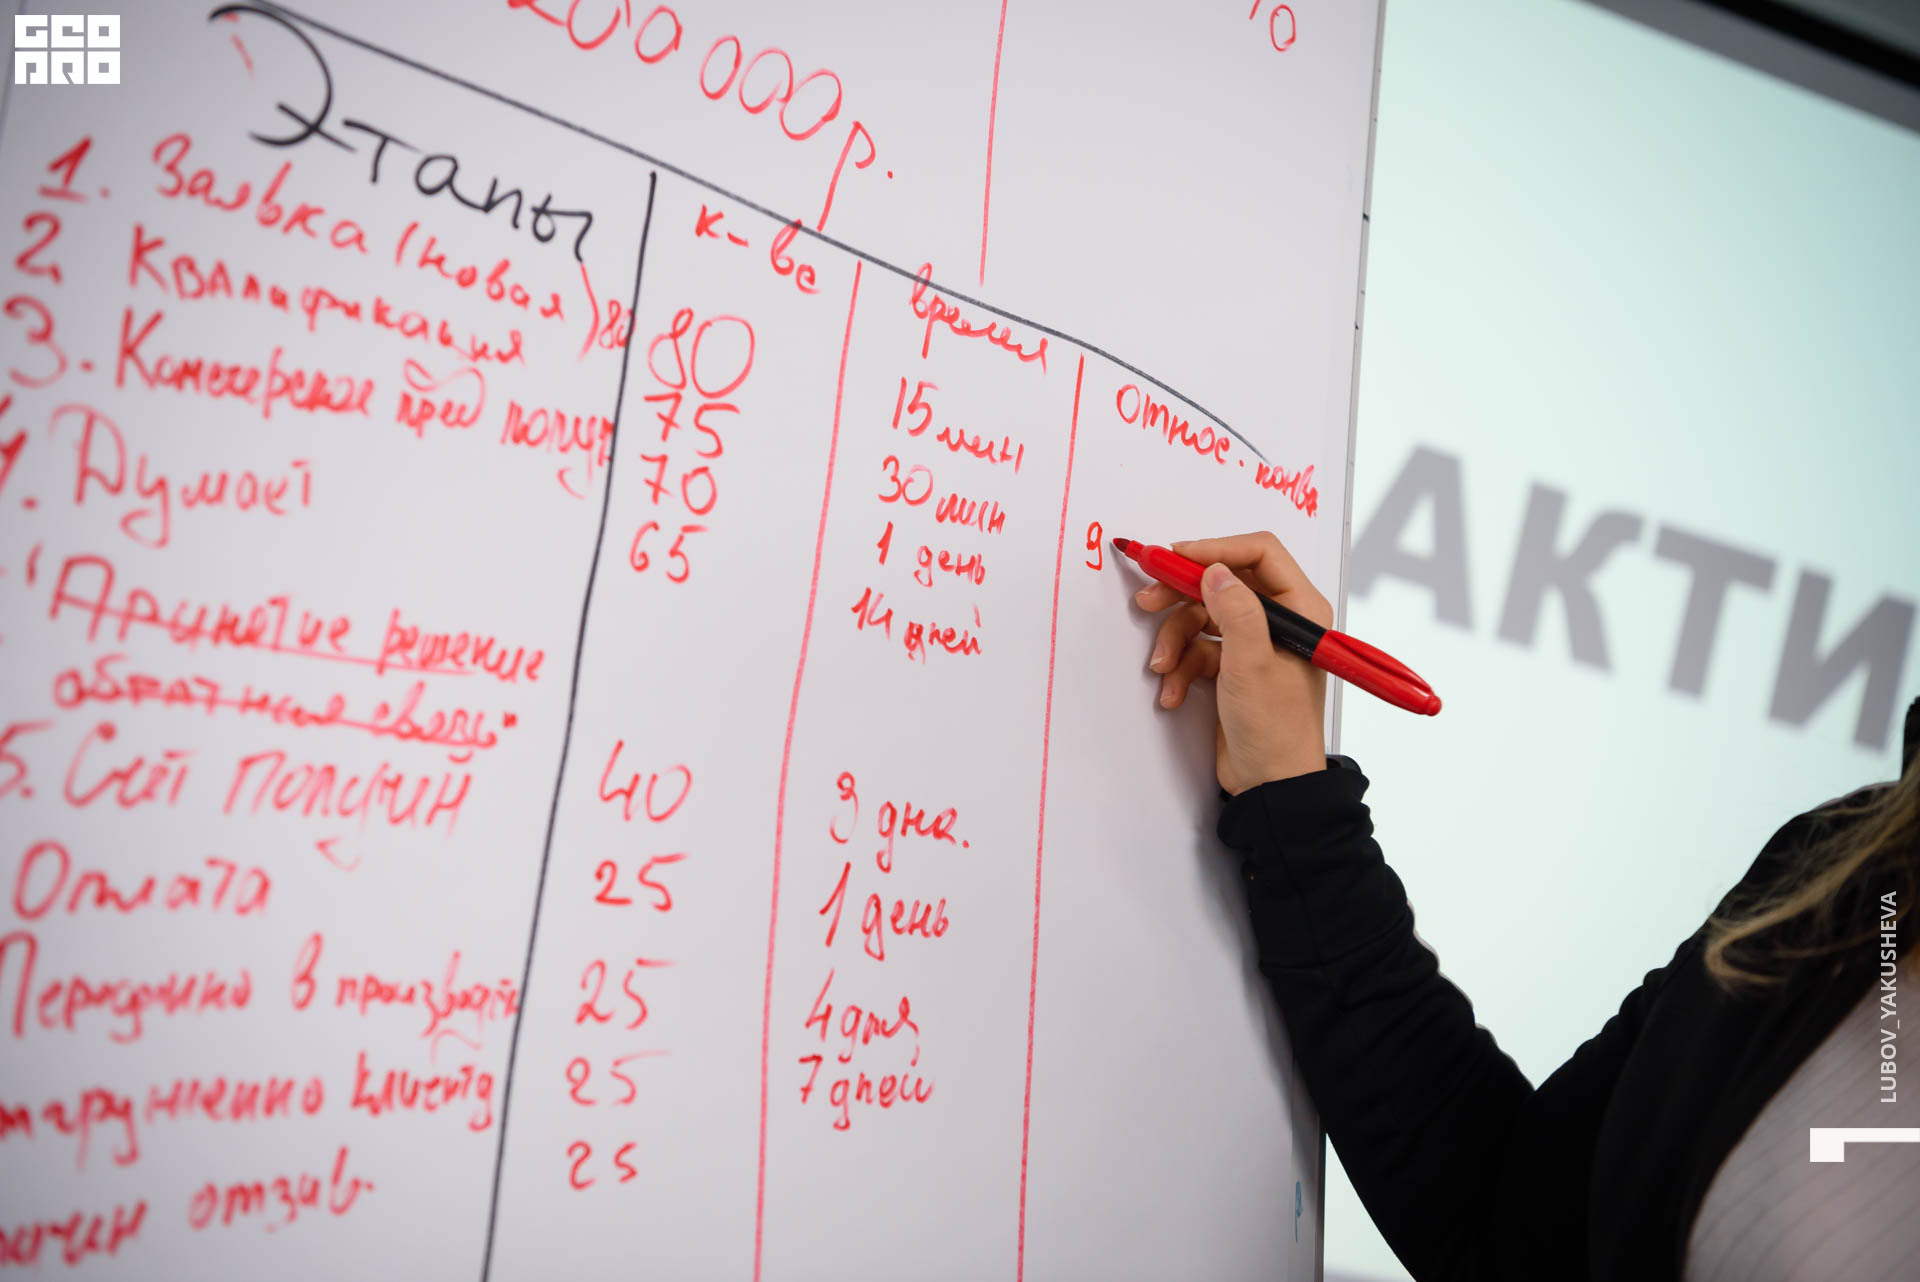 GEO
PRO
200 000 р.
Этапы
к-во
время
Относ. конв.
1. Заявка (новая) 80
80
15 мин
2. Квалификация
75
30 мин
9
3. Комерческое пред получ
70
1 день
4. Думает
65
14 дней
"Принятие решение
обратная связь"
5. Счёт получин
40
3 дна.
Оплата
25
1 день
Передонно в производств
25
4 дня
отгружненно клиенту
25
7 дней
отзыв
25
АКТИ
LUBOV_YAKUSHEVA